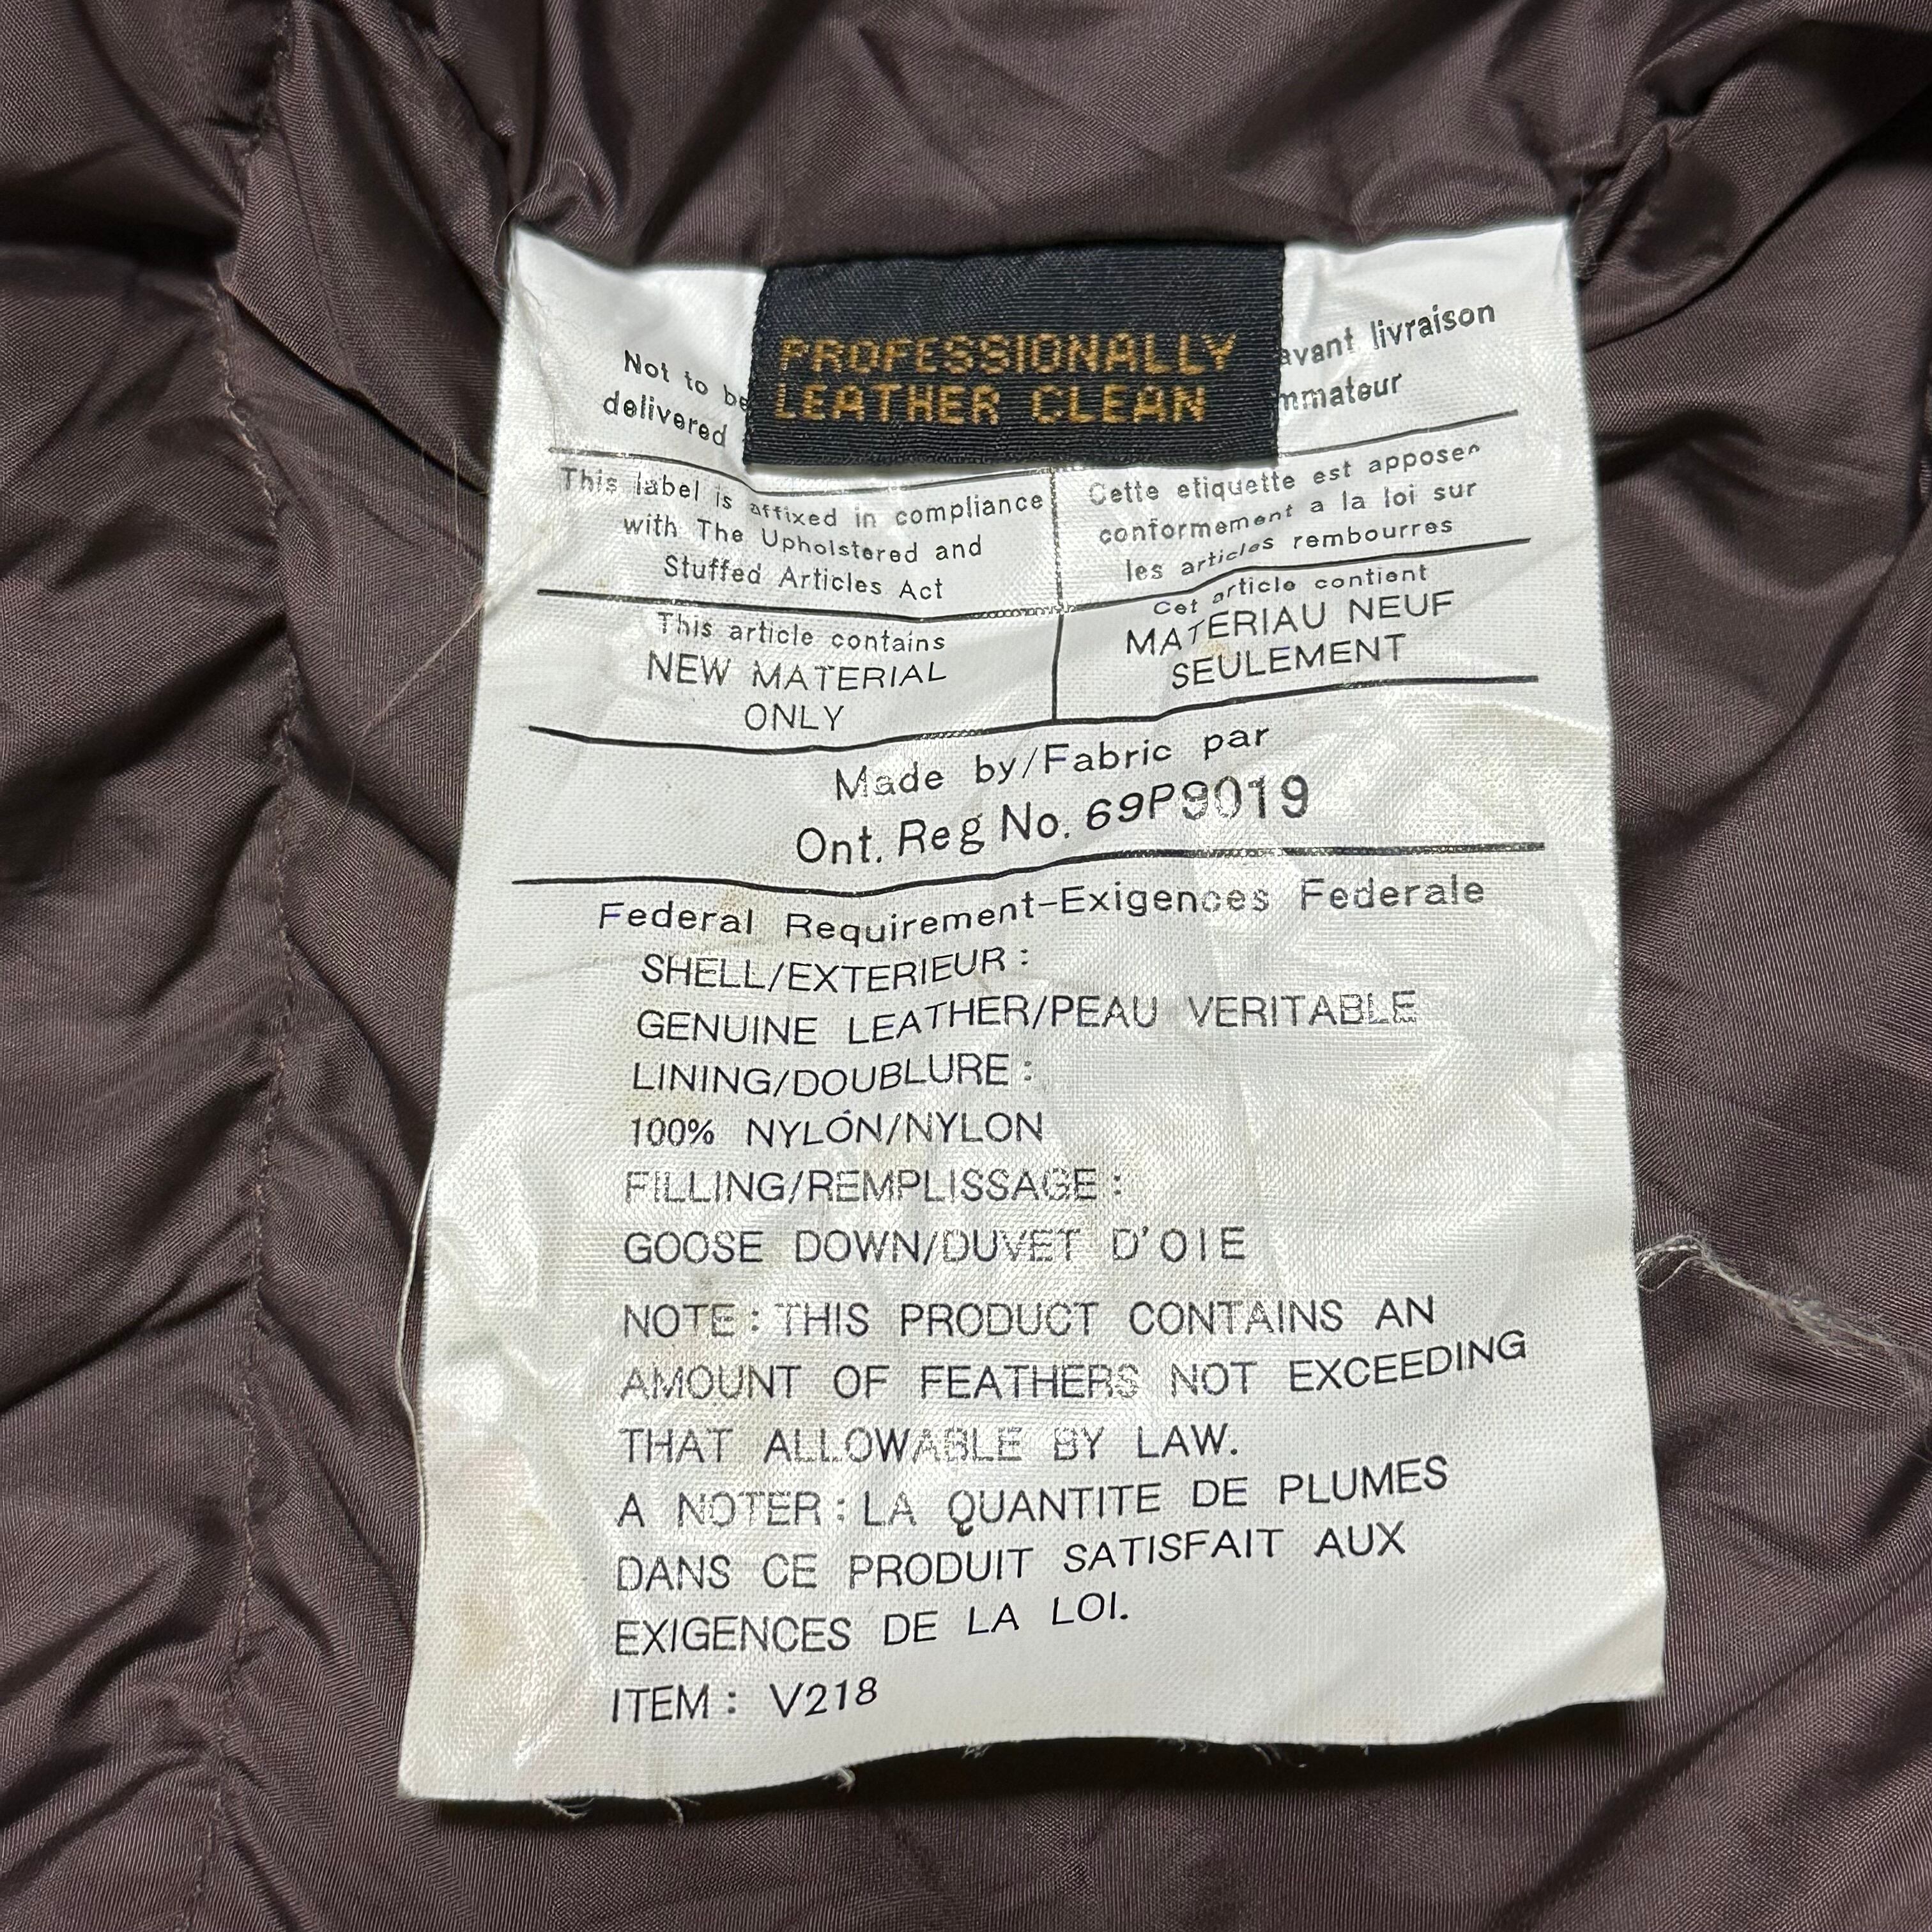 PROFESSIONALLY
LEATHER CLEAN
Not to be
delivered
avant livraison
mmateur
This label is affixed in compliance
with The Upholstered and
Stuffed Articles Act
Cette etiquette est apposee
conformement a la loi sur
les articles rembourres
This article contains
NEW MATERIAL
ONLY
Cet article contient
MATERIAU NEUF
SEULEMENT
Made by/Fabric par
Ont. Reg No. 69P9019
Federal Requirement-Exigences Federale
SHELL/EXTERIEUR :
GENUINE LEATHER/PEAU VERITABLE
LINING/DOUBLURE :
100% NYLON/NYLON
FILLING/REMPLISSAGE :
GOOSE DOWN/DUVET D'OIE
NOTE : THIS PRODUCT CONTAINS AN
AMOUNT OF FEATHERS NOT EXCEEDING
THAT ALLOWABLE BY LAW.
A NOTER : LA QUANTITE DE PLUMES
DANS CE PRODUIT SATISFAIT AUX
EXIGENCES DE LA LOI.
ITEM : V218